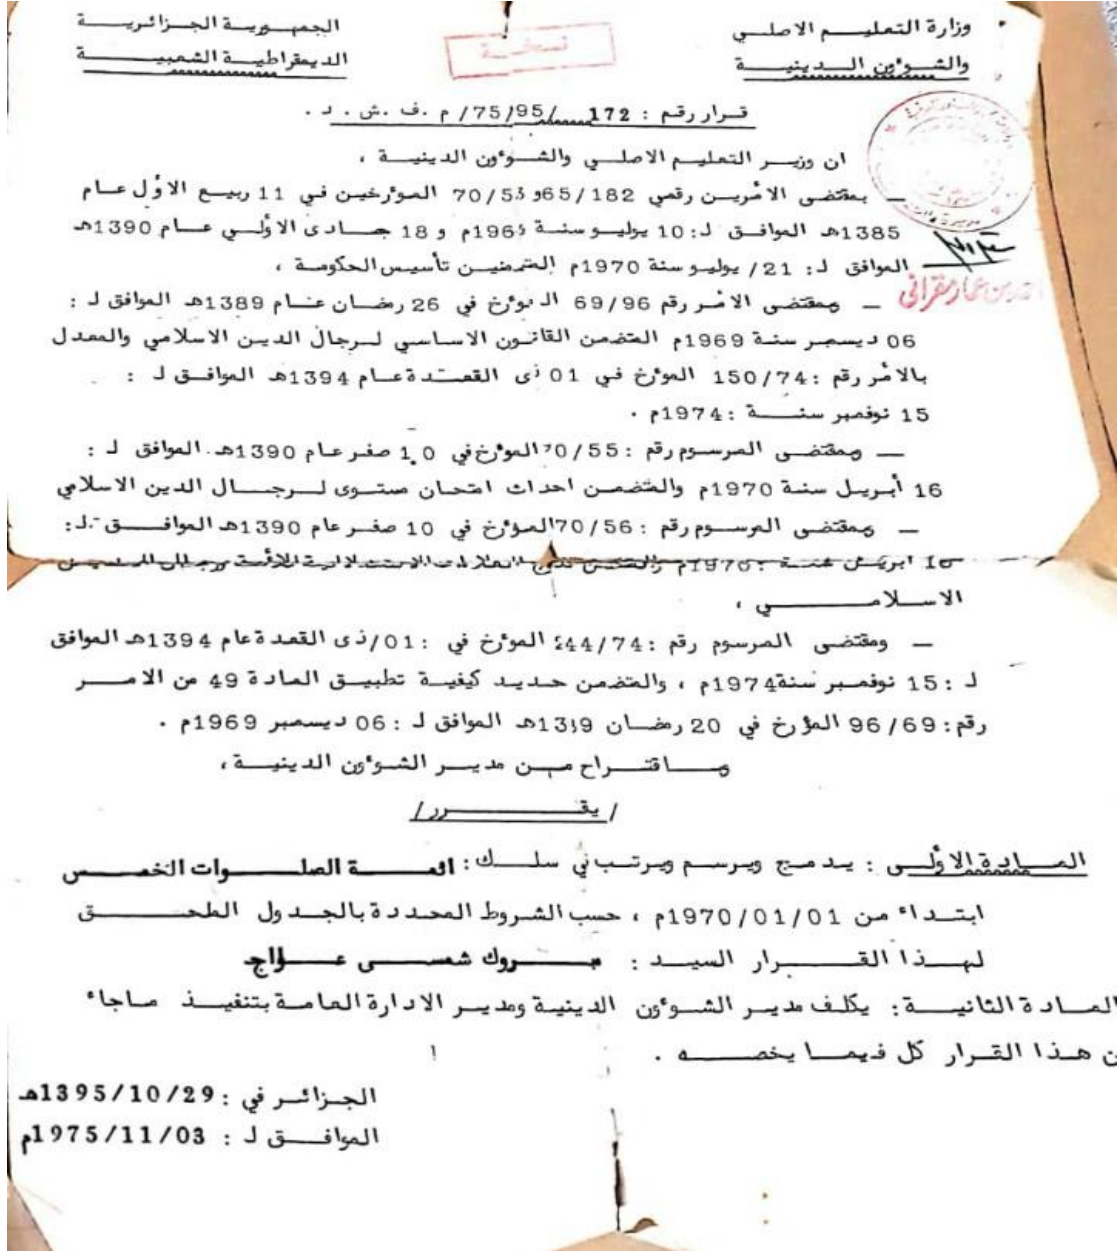 الجمهورية الجزائرية
الديمقراطية الشعبية
وزارة التعليم الاصلي
والشوٴون الدينية
نسخة
قرار رقم : 172/75/95/ م .ف .ش . د .
ان وزير التعليم الاصلي والشوٴون الدينية ،
ـ بمقتضى الامٔرين رقمي 65/182و 70/53 الموٴرخين في 11 ربيع الاوٴل عام
1385هـ الموافق لـ: 10 يوليو سنة 1965م و 18 جمادى الاوٴلي عام 1390هـ
الموافق لـ: 21/ يوليو سنة 1970م المتضمين تأسيس الحكومة ،
ـ وبمقتضى الامٔر رقم 69/96 الموٴرخ في 26 رمضان عام 1389هـ الموافق لـ :
06 ديسمبر سنة 1969م المتضمن القانون الاساسي لرجال الدين الاسلامي والمعدل
بالامٔر رقم :150/74 الموٴرخ في 01 ذى القعدة عام 1394هـ الموافق لـ :
15 نوفمبر سنة :1974م .
ـ وبمقتضى المرسوم رقم :70/55 الموٴرخ في 10 صفر عام 1390هـ الموافق لـ :
16 أبريل سنة 1970م والمتضمن احداث امتحان مستوى لرجال الدين الاسلامي
ـ وبمقتضى المرسوم رقم :70/56 الموٴرخ في 10 صفر عام 1390هـ الموافق لـ:
16 ابريل سنة :1970م والمتضمن العلامات الاستدلالية للائمة ورجال الدين
الاسلامي ،
ـ ومقتضى المرسوم رقم :244/74 الموٴرخ في :01/ذى القعدة عام 1394هـ الموافق
لـ :15 نوفمبر سنة1974م ، والمتضمن حديد كيفية تطبيق المادة 49 من الامر
رقم: 96/69 الموٴرخ في 20 رمضان 1389هـ الموافق لـ : 06 ديسمبر 1969م .
وباقتراح من مدير الشوٴون الدينية ،
/ يقرر /
المادة الاوٴلى : يدمج ويرسم ويرتب في سلك : ائمة الصلوات الخمس
ابتداء من 1970/01/01م ، حسب الشروط المحددة بالجدول الملحق
لهذا القرار السيد : مبروك شمسى عواج
المادة الثانية : يكلف مدير الشوٴون الدينية ومدير الادارة العامة بتنفيذ ماجاء
ن هذا القرار كل فيما يخصه .
الجزائر في : 1395/10/29هـ
الموافق لـ : 1975/11/03م